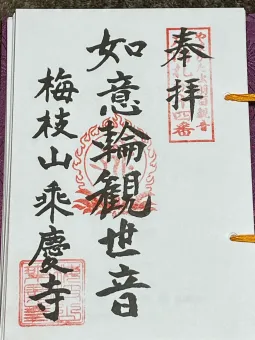 奉拝
如意輪観世音
梅枝山乗慶寺